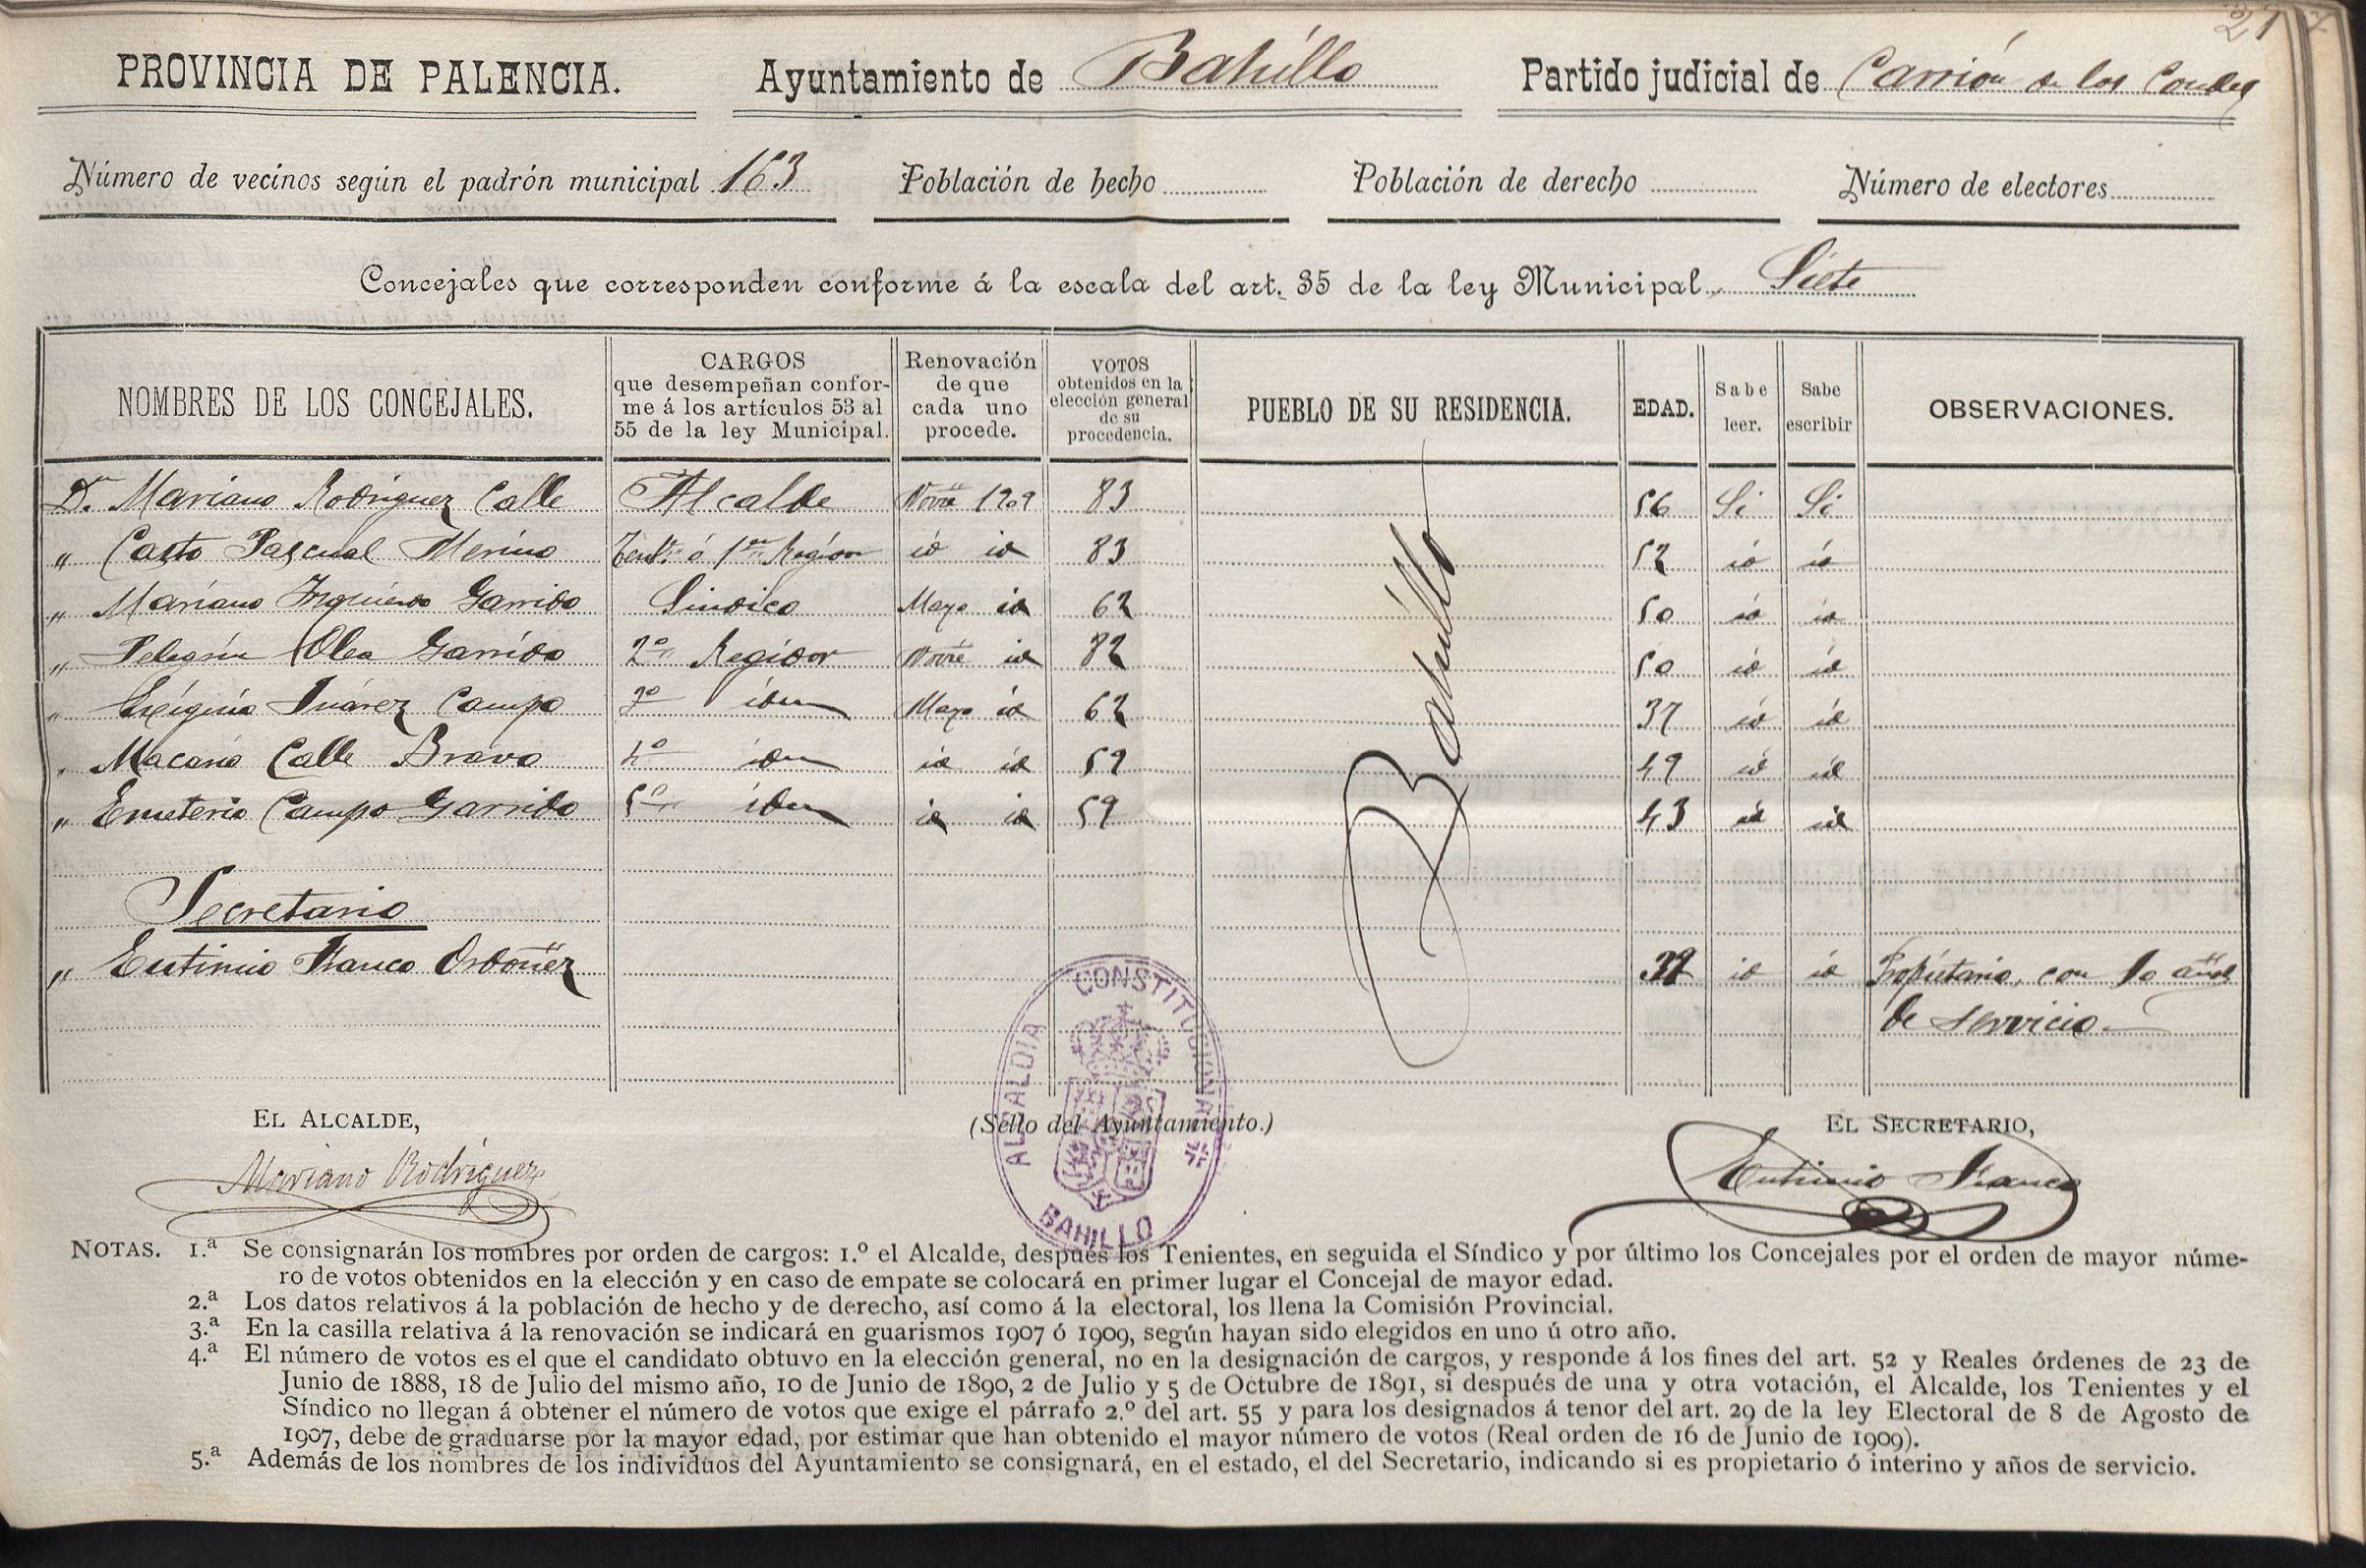 27
PROVINCIA DE PALENCIA. Ayuntamiento de Bahillo Partido judicial de Carrión de los Condes
Número de vecinos según el padrón municipal 163 Población de hecho Población de derecho Número de electores
Concejales que corresponden conforme á la escala del art. 35 de la ley Municipal Siete
NOMBRES DE LOS CONCEJALES. CARGOS que desempeñan confor-me á los artículos 53 al 55 de la ley Municipal. Renovación de que cada uno procede. VOTOS obtenidos en la elección general de su procedencia. PUEBLO DE SU RESIDENCIA. EDAD. Sabe leer. Sabe escribir OBSERVACIONES.
D. Mariano Rodriguez Calle Alcalde Novre 1909 83 56 Si Si
" Casto Pascual Merino Tente ó 1er Regidor id id 83 52 id id
" Mariano Izquierdo Garrido Sindico Mayo id 62 50 id id
" Pelegrin Olea Garrido 2º Regidor Novre id 82 50 id id
" Higinio Juárez Campo 3º idem Mayo id 62 37 id id
" Macario Calle Bravo 4º idem id id 59 49 id id
" Emeterio Campo Garrido 5º idem id id 59 43 id id
Bahillo
Secretario
" Eutimio Franco Ordoñez id id Propietario, con 10 años
de servicio
EL ALCALDE, (Sello del Ayuntamiento.) EL SECRETARIO,
Mariano Rodriguez Eutimio Franco
ALCALDIA CONSTITUCIONAL
BAHILLO
NOTAS. 1.ª Se consignarán los nombres por orden de cargos: 1.º el Alcalde, después los Tenientes, en seguida el Síndico y por último los Concejales por el orden de mayor núme-
ro de votos obtenidos en la elección y en caso de empate se colocará en primer lugar el Concejal de mayor edad.
2.ª Los datos relativos á la población de hecho y de derecho, así como á la electoral, los llena la Comisión Provincial.
3.ª En la casilla relativa á la renovación se indicará en guarismos 1907 ó 1909, según hayan sido elegidos en uno ú otro año.
4.ª El número de votos es el que el candidato obtuvo en la elección general, no en la designación de cargos, y responde á los fines del art. 52 y Reales órdenes de 23 de
Junio de 1888, 18 de Julio del mismo año, 10 de Junio de 1890, 2 de Julio y 5 de Octubre de 1891, si después de una y otra votación, el Alcalde, los Tenientes y el
Síndico no llegan á obtener el número de votos que exige el párrafo 2.º del art. 55 y para los designados á tenor del art. 29 de la ley Electoral de 8 de Agosto de
1907, debe de graduarse por la mayor edad, por estimar que han obtenido el mayor número de votos (Real orden de 16 de Junio de 1909).
5.ª Además de los nombres de los individuos del Ayuntamiento se consignará, en el estado, el del Secretario, indicando si es propietario ó interino y años de servicio.